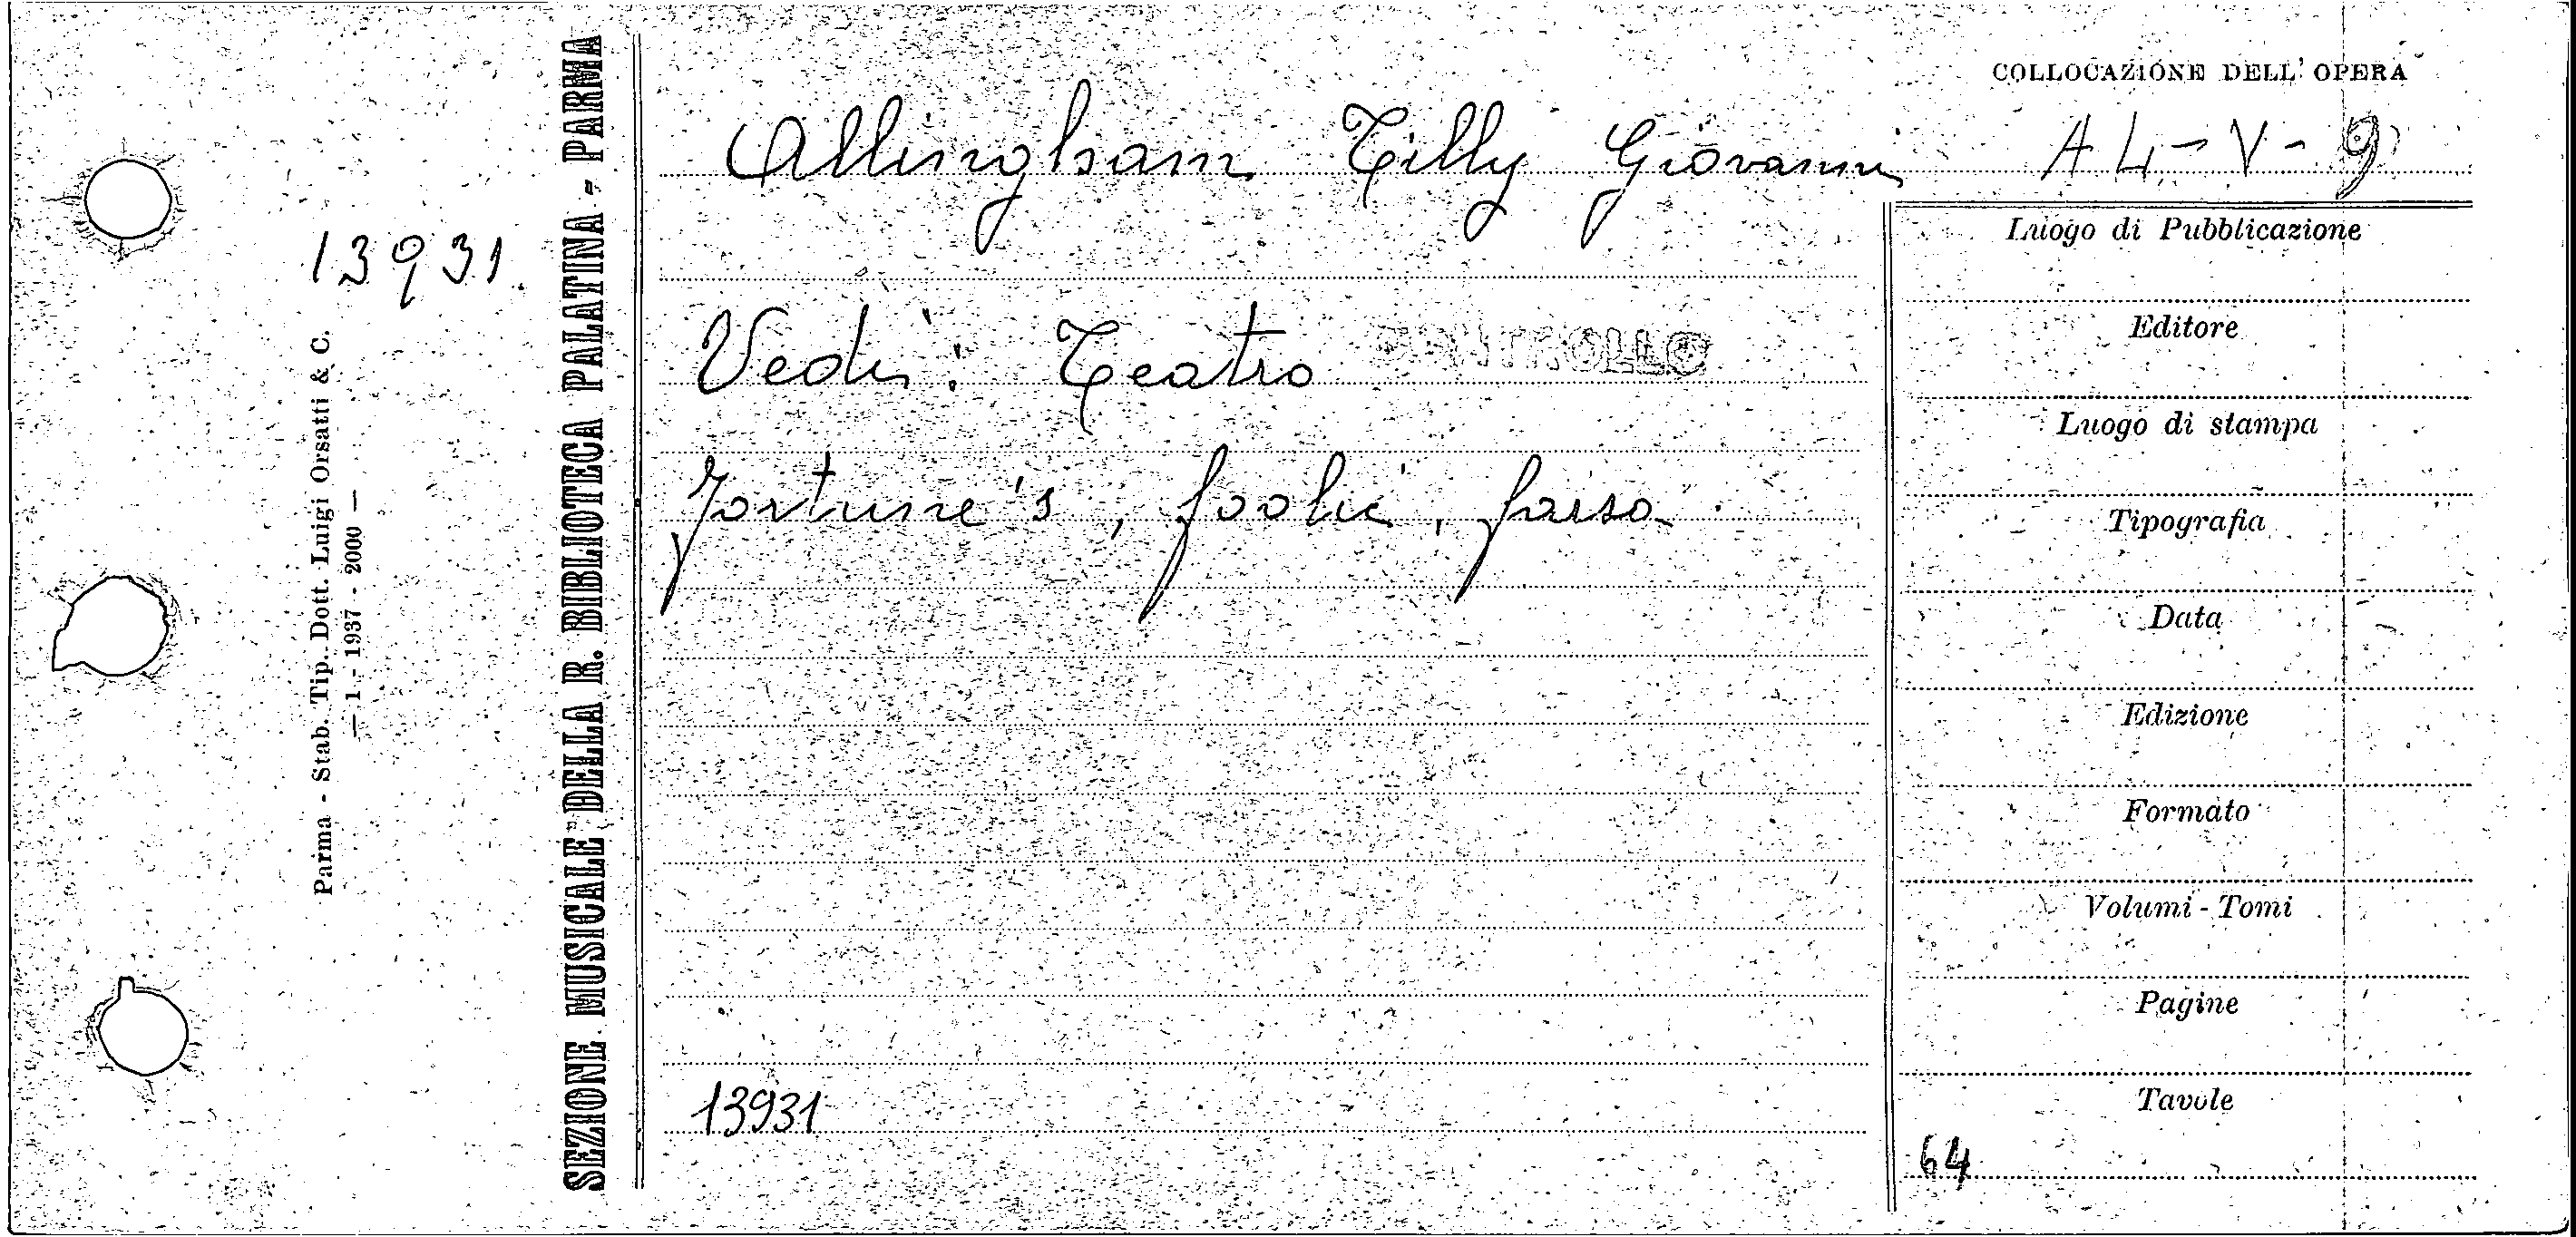 COLLOCAZIONE DELL'OPERA
Allingham Tilly Giovanni
A L - V - 9
13931
Vedi: Teatro
CONTROLLO
Fortune's, foolie, farsa
13931
Luogo di Pubblicazione
Editore
Luogo di stampa
Tipografia
Data
Edizione
Formato
Volumi - Tomi
Pagine
Tavole
64
SEZIONE MUSICALE DELLA R. BIBLIOTECA PALATINA - PARMA
Parma - Stab. Tip. Dott. Luigi Orsatti & C.
— 1 - 1937 - 2000 —